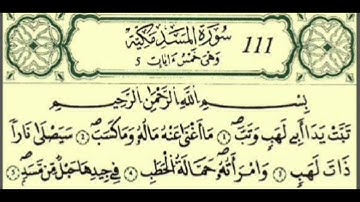 سُورَةُ المَسَدِ مَكِّيَّة
111
وَهِيَ خَمْسُ ءَايَات 5
بِسْمِ اللَّهِ الرَّحْمَٰنِ الرَّحِيمِ
تَبَّتْ يَدَا أَبِي لَهَبٍ وَتَبَّ ١ مَا أَغْنَىٰ عَنْهُ مَالُهُ وَمَا كَسَبَ ٢ سَيَصْلَىٰ نَارًا
ذَاتَ لَهَبٍ ٣ وَامْرَأَتُهُ حَمَّالَةَ الْحَطَبِ ٤ فِي جِيدِهَا حَبْلٌ مِّن مَّسَدٍ ٥